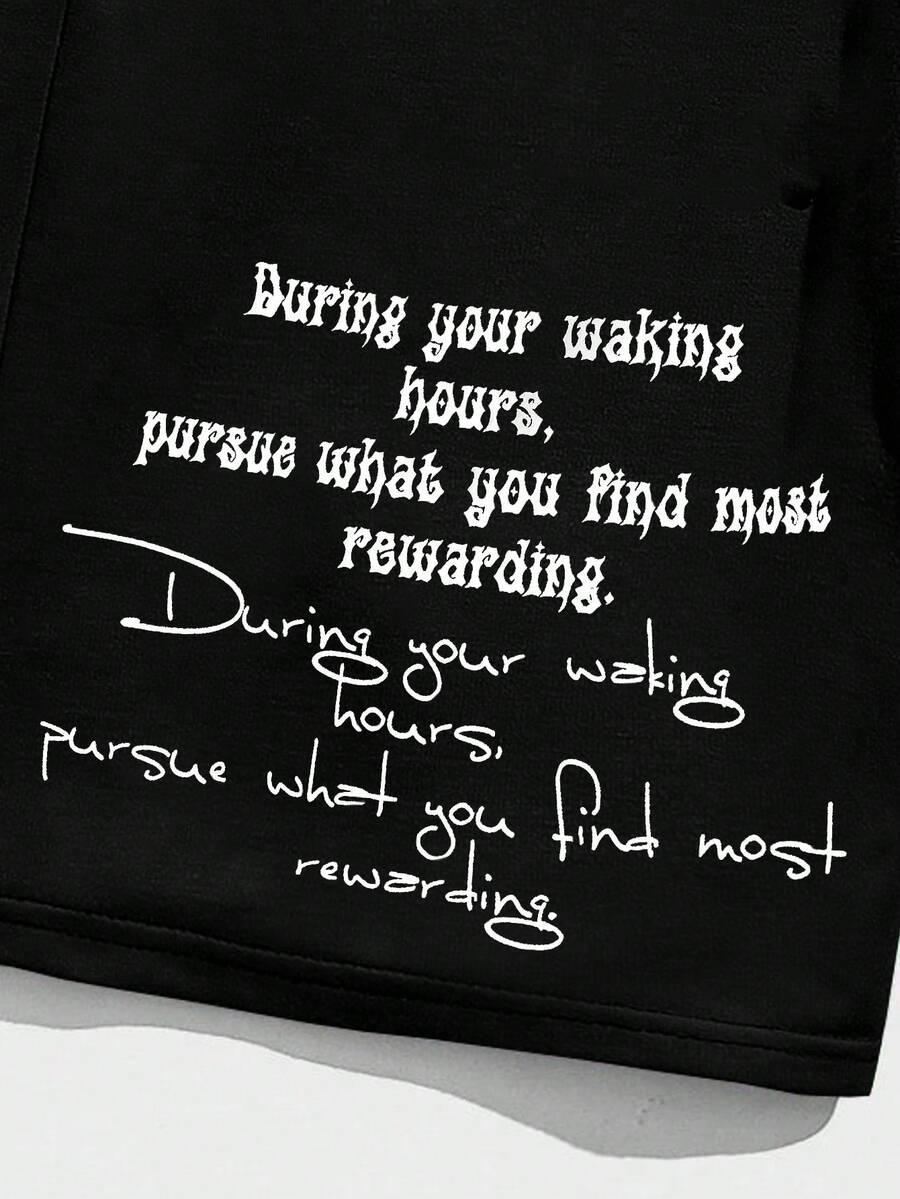 During your waking
hours,
pursue what you find most
rewarding.
During your waking
hours,
pursue what you find most
rewarding.